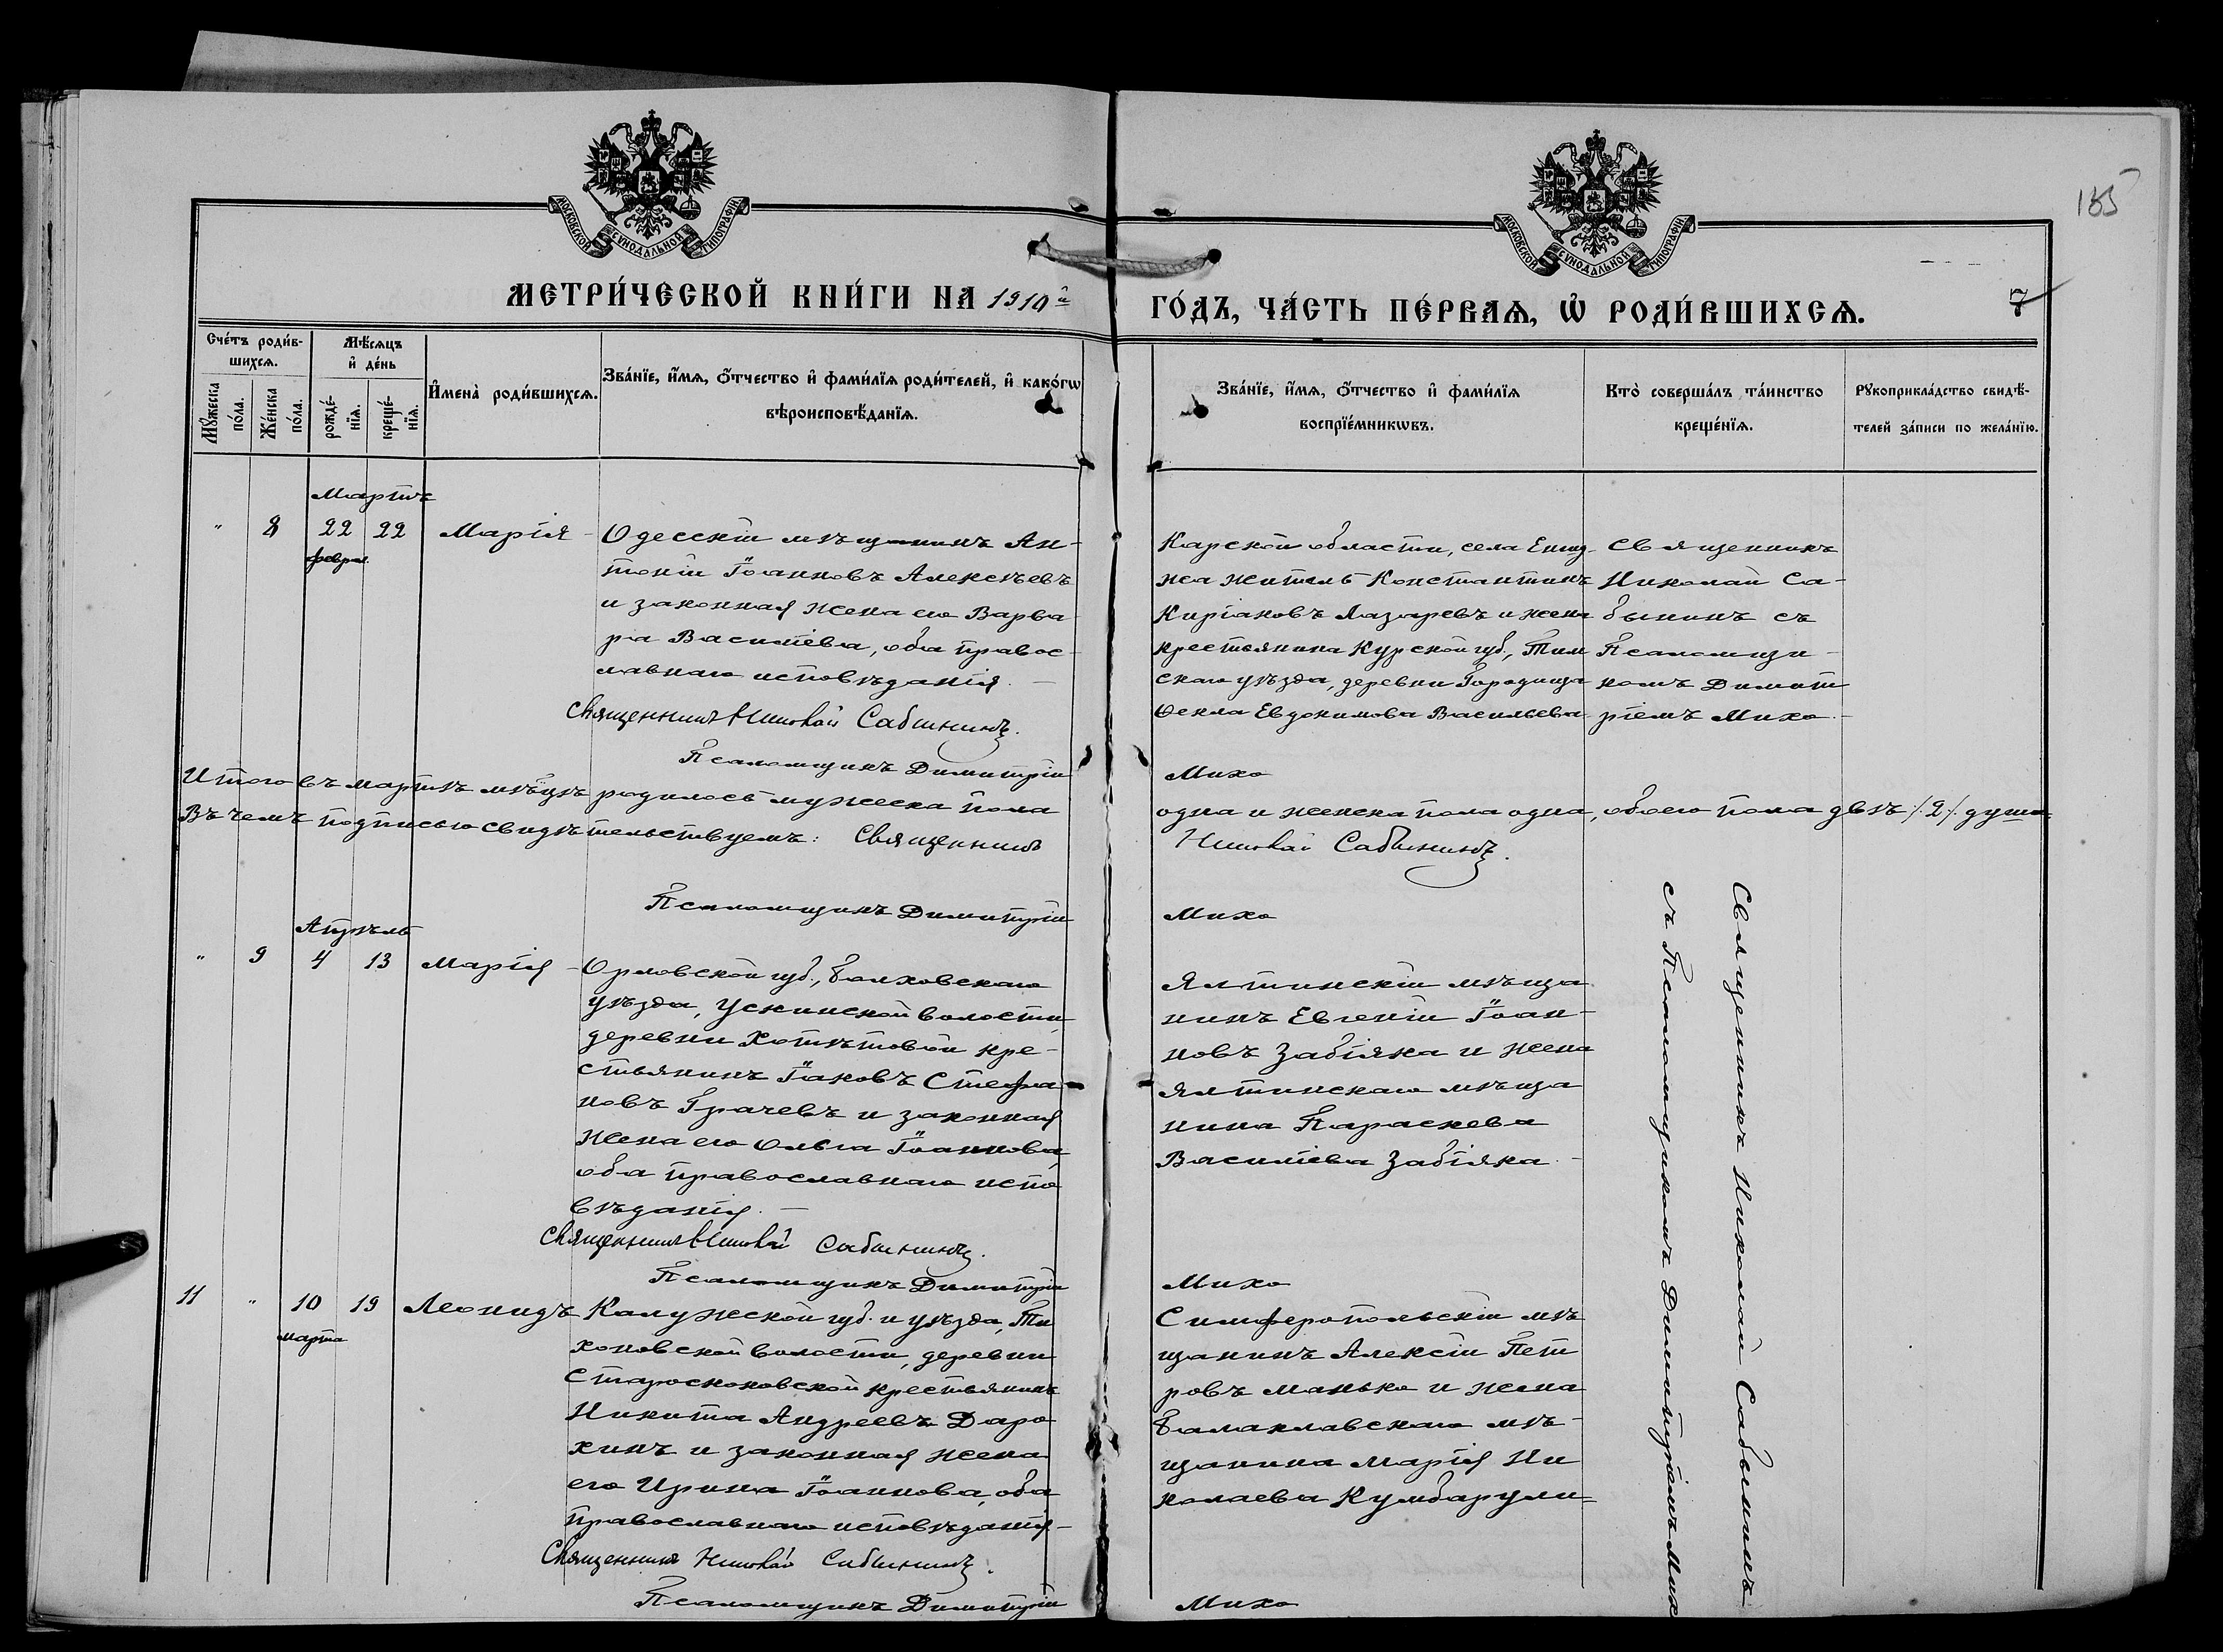 МОСКОВСКОЙ СѴНОДАЛЬНОЙ ТИПОГРАФІИ
МОСКОВСКОЙ СѴНОДАЛЬНОЙ ТИПОГРАФІИ
185
МЕТРИ́ЧЕСКОЙ КНИ́ГИ НА 1910й
ГО́ДЪ, ЧА́СТЬ ПЕ́РВАѦ, Ѡ҆ РОДИ́ВШИХСѦ.
7
Сче́тъ роди́в-
шихсѧ.
Мꙋ́жеска
по́ла.
Же́нска
по́ла.
Мѣ́сѧцъ
и҆ де́нь
рожде́-
нїѧ.
креще́-
нїѧ.
И҆мена̀ роди́вшихсѧ.
Зва́нїе, и҆́мѧ, ѻ҆́тчество и҆ фами́лїѧ роди́телей, и҆ како́гѡ
вѣроисповѣ́данїѧ.
Зва́нїе, и҆́мѧ, ѻ҆́тчество и҆ фами́лїѧ
воспрїе́мникѡвъ.
Кто̀ соверша́лъ та́инство
креще́нїѧ.
Рꙋкоприкла́дство свидѣ́-
телей за́писи по жела́нїю.
Мартъ
" 8 22 22 Марія -
февра.
Одесскій мѣщанинъ Ан-
тоній Іоанновъ Алексѣевъ
и законная жена его Варва
ра Василіева, оба правос-
лавнаго исповѣданія. -
Священникъ Николай Сабининъ.
Псаломщикъ Димитрій
Карской области, села
жа житель Константинъ
Киріаковъ Лазаревъ и жена
крестьянина Курской губ., Тим
скаго уѣзда, деревни Городища
Ѳекла Евдокимова Васильева.
Михо
Священникъ
Николай Са-
бынинъ съ
Псаломщи-
комъ Димит
ріемъ Михо. -
Итого въ мартѣ мѣсяцѣ родилось мужеска пола
одна и женска пола одна, обоего пола двѣ /.2/. души
Въ чемъ подписью свидѣтельствуемъ: Священникъ
Николай Сабынинъ.
Псаломщикъ Димитрій
Михо
Апрѣль
" 9 4 13 Марія -
Орловской губ., Болховскаго
уѣзда, Ускинской волости,
деревни Хотѣтовой кре-
стьянинъ Іаковъ Стефа-
новъ Грачевъ и законная
жена его Ольга Іоаннова,
оба православнаго испо
вѣданія. -
Священникъ Николай Сабынинъ.
Псаломщикъ Димитрій
Ялтинскій мѣща
нинъ Евгеній Іоан-
новъ Забіяка и жена
ялтинскаго мѣща
нина Параскева
Василіева Забіяка. -
Михо
Священникъ Николай Сабынинъ
съ Псаломщикомъ Димитріемъ Михо
11 " 10 19 Леонидъ
марта
Калужской губ. и уѣзда, Ти
хоновской волости, деревни
Староскоковской крестьянинъ
Никита Андреевъ Даро
хинъ и законная жена
его Ирина Іоаннова, оба
православнаго исповѣданія -
Священникъ Николай Сабынинъ.
Псаломщикъ Димитрій
Симферопольскій мѣ
щанинъ Алексій Пет
ровъ Манько и жена
балаклавскаго мѣ-
щанина Марія Ни
колаева Кумбарули=
Михо